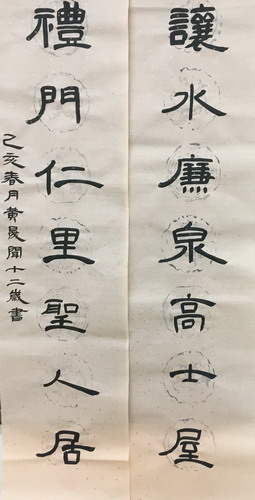 讓水廉泉高士屋
禮門仁里聖人居
己亥春月黃晟聞十二歲書